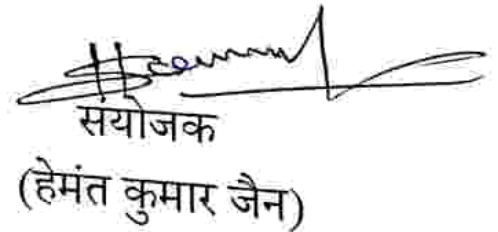 संयोजक
(हेमंत कुमार जैन)